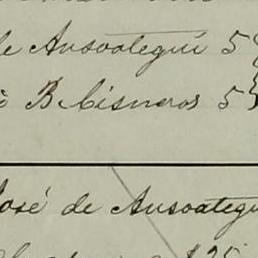 de Ansoategui 5
o B Cisneros 5
José de Ansoategu
$25